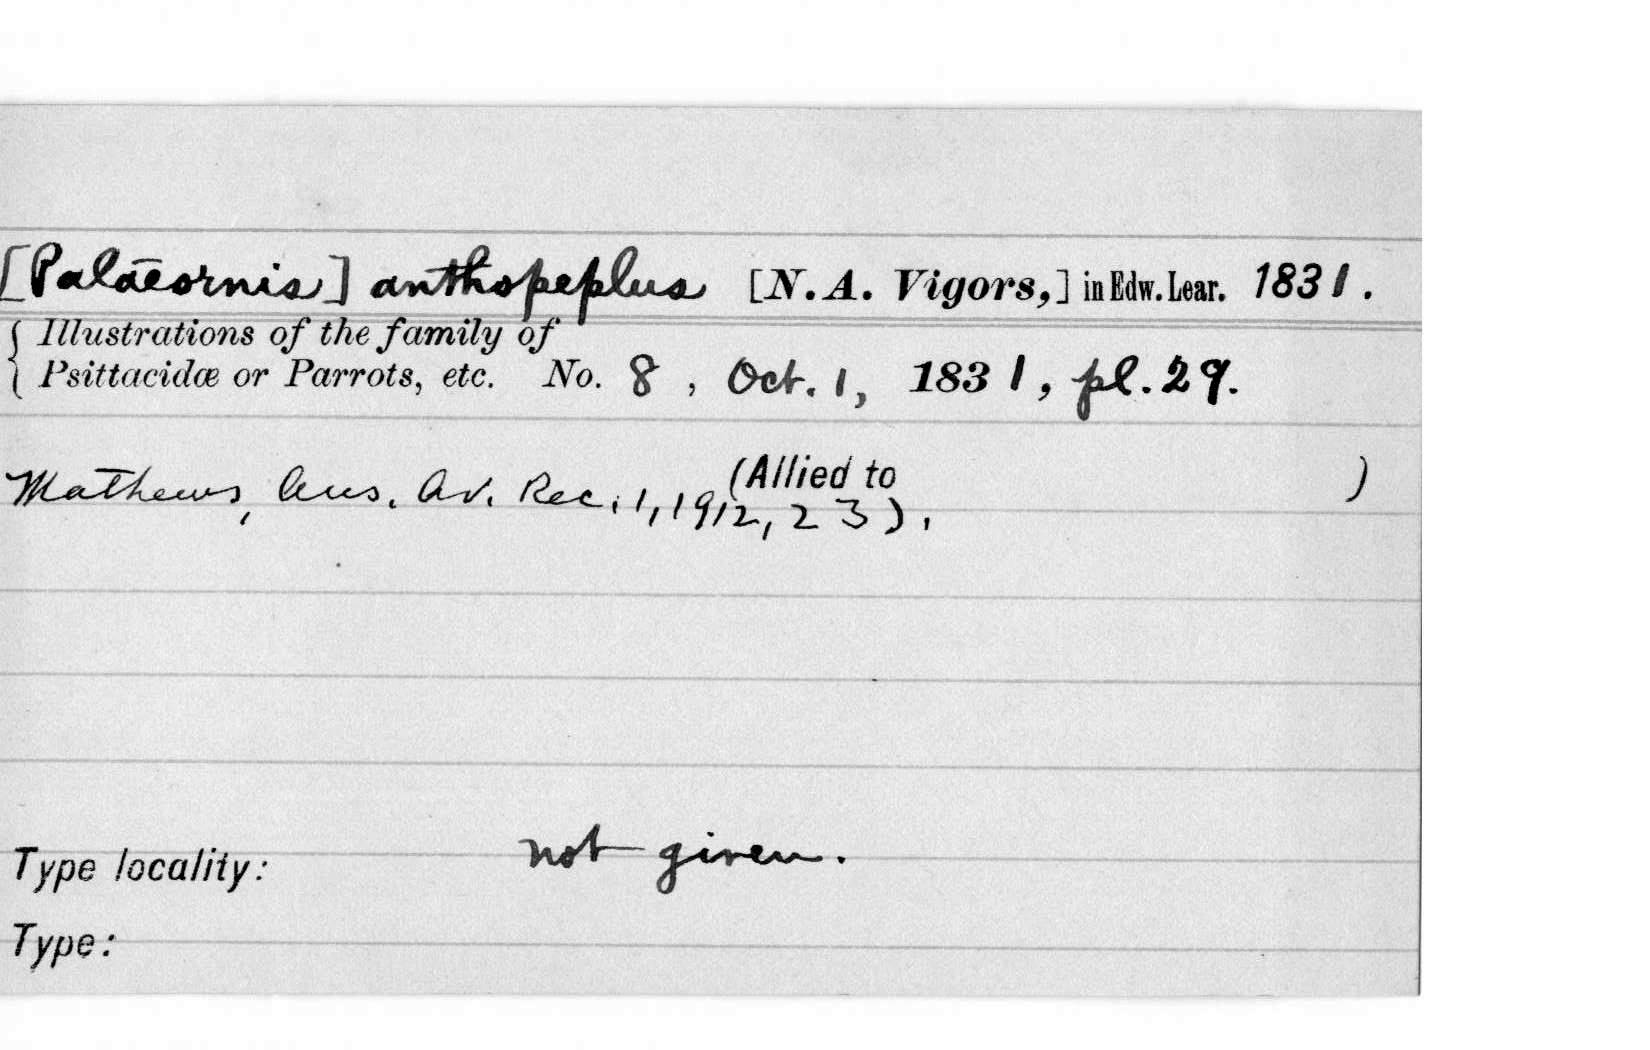 [Palaeornis] anthopeplus [N. A. Vigors,] in Edw. Lear. 1831.
Illustrations of the family of
Psittacidæ or Parrots, etc. No. 8, Oct. 1, 1831, pl. 29.
(Allied to )
Mathews, Aus. Av. Rec. 1, 1912, 23).
Type locality: not given.
Type: